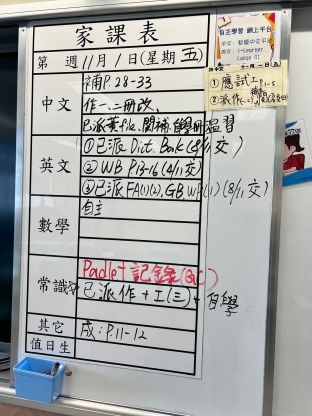 家課表
自主學習 網上平台
第 週 11月1日(星期五)
中文
補P.28-33
作一、二冊改、
已派
溫習
① 應試工 P.1-5
② 派作(二)
英文
① 已派 Dict. Book (8/11交)
② WB P.13-16 (4/11交)
③ 已派 FA(1)(2), GB, WP(1) (8/11交)
數學
自主
常識
Padlet 記錄
已派作 + 工(三) + 自學
其它
成:P.11-12
值日生